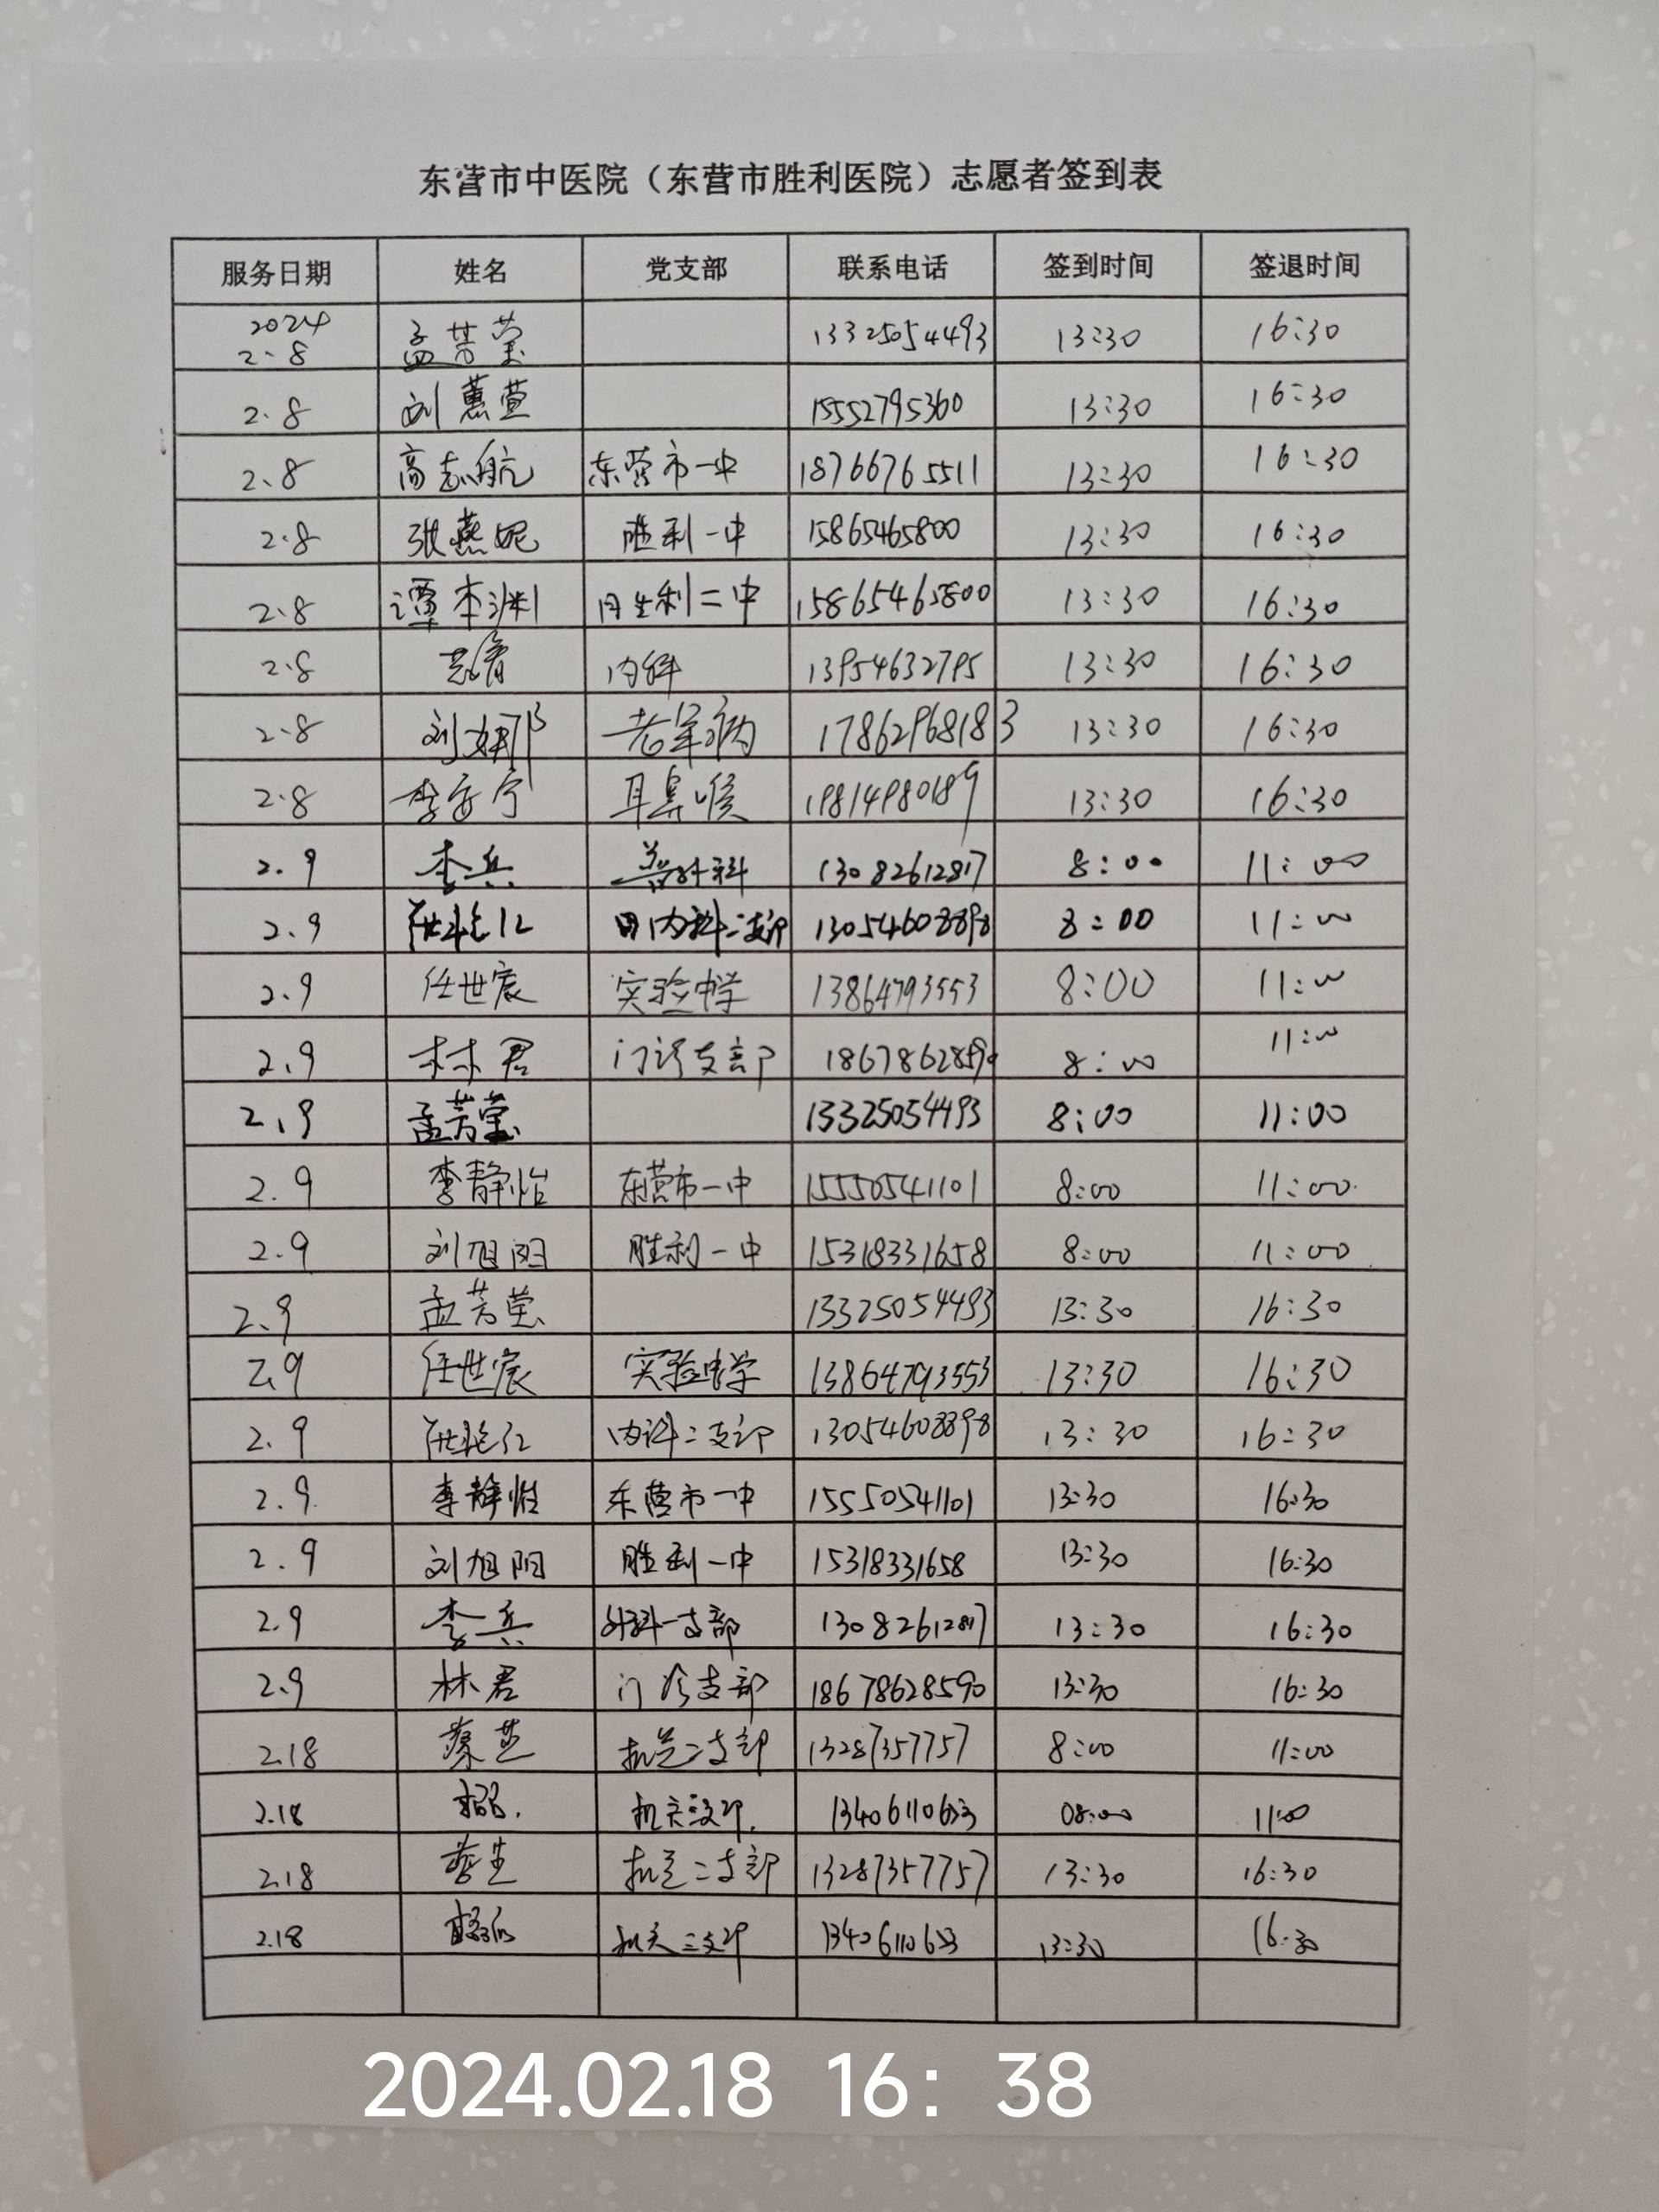 东营市中医院（东营市胜利医院）志愿者签到表
服务日期 姓名 党支部 联系电话 签到时间 签退时间
2024 2.8 孟芳莹 13325054493 13:30 16:30
2.8 刘蕙萱 15552795360 13:30 16:30
2.8 高志航 东营市一中 18766765511 13:30 16:30
2.8 张燕妮 胜利一中 15865465800 13:30 16:30
2.8 谭本渊 胜利二中 15865465800 13:30 16:30
2.8 内科 13954632795 13:30 16:30
2.8 刘娜 老年病 17862968183 13:30 16:30
2.8 李安宁 耳鼻喉 19814980189 13:30 16:30
2.9 李兵 普外科 13082612817 8:00 11:00
2.9 内科二支部 13054608898 8:00 11:00
2.9 任世宸 实验中学 13864793553 8:00 11:00
2.9 林君 门诊支部 18678628590 8:00 11:00
2.9 孟芳莹 13325054493 8:00 11:00
2.9 李静怡 东营市一中 15550541101 8:00 11:00
2.9 刘旭阳 胜利一中 15318331658 8:00 11:00
2.9 孟芳莹 13325054493 13:30 16:30
2.9 任世宸 实验中学 13864793553 13:30 16:30
2.9 内科二支部 13054608898 13:30 16:30
2.9 李静怡 东营市一中 15550541101 13:30 16:30
2.9 刘旭阳 胜利一中 15318331658 13:30 16:30
2.9 李兵 外科一支部 13082612817 13:30 16:30
2.9 林君 门诊支部 18678628590 13:30 16:30
2.18 机关二支部 13287357757 8:00 11:00
2.18 机关三支部 08:00 11:00
2.18 机关二支部 13287357757 13:30 16:30
2.18 机关三支部 13:30 16:30
2024.02.18 16：38